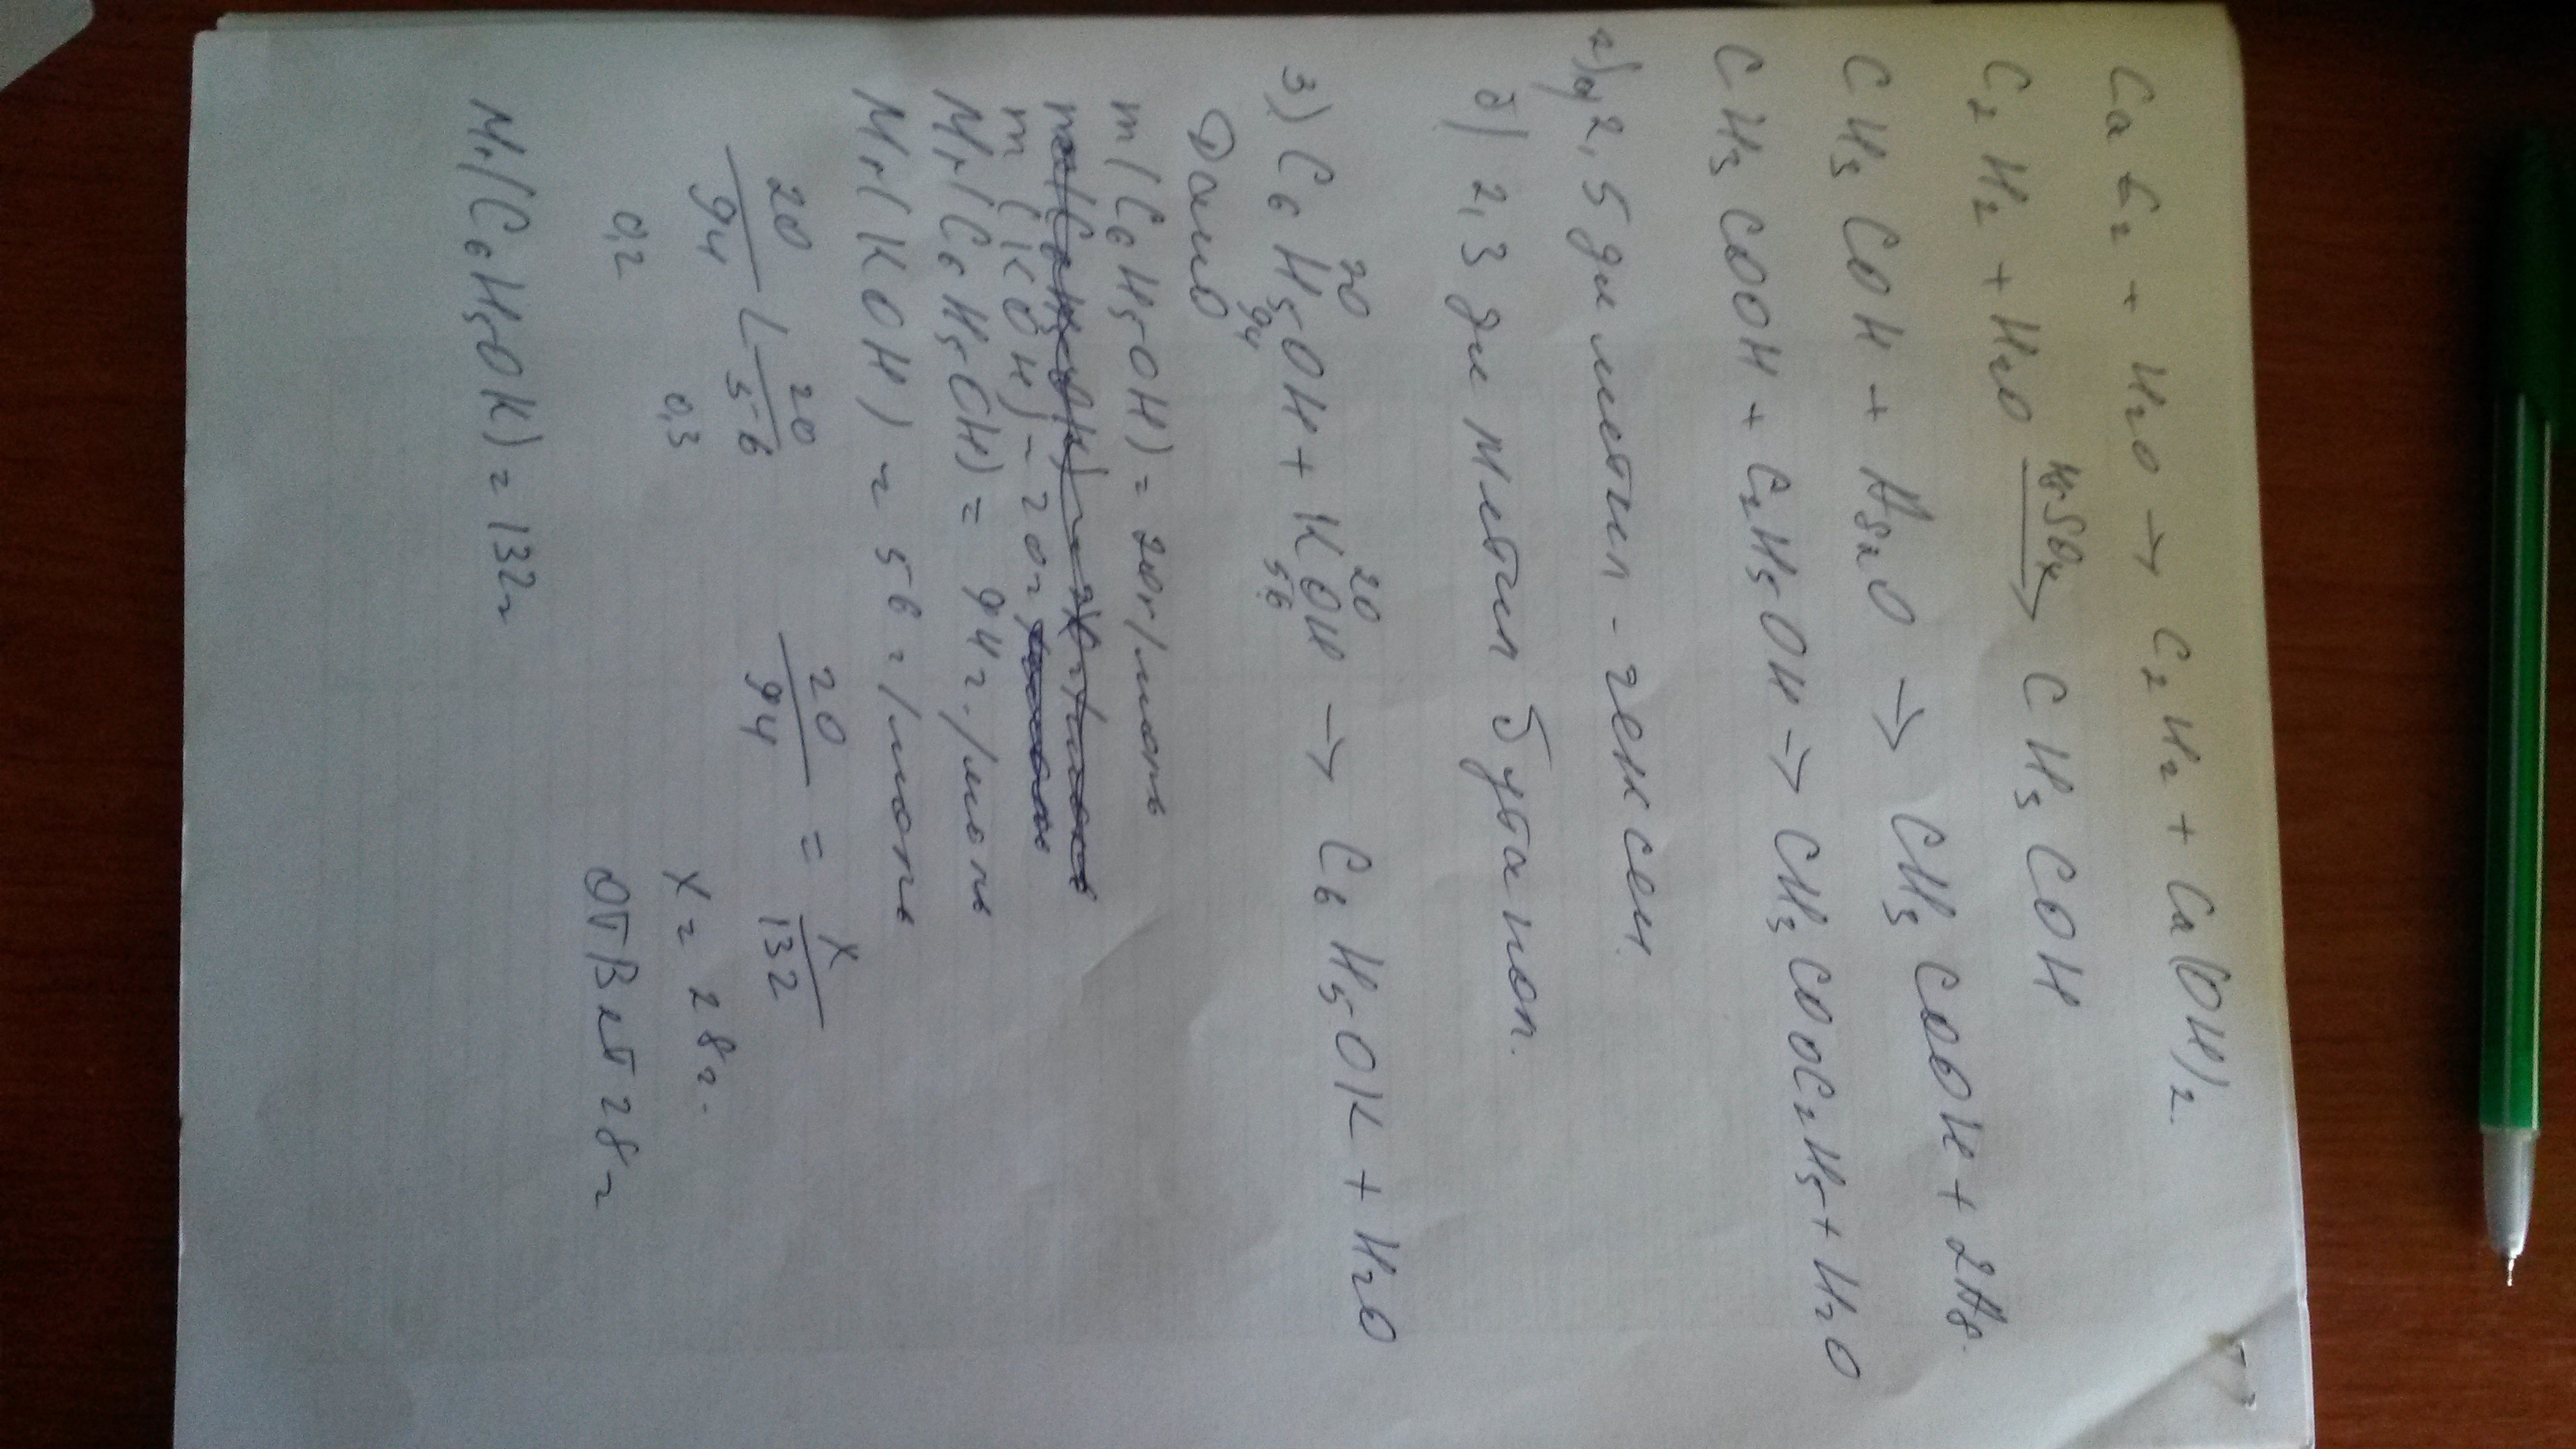 CaC₂ + H₂O → C₂H₂ + Ca(OH)₂.
C₂H₂ + H₂O —HgSO₄→ CH₃COH
CH₃COH + Ag₂O → CH₃COOH + 2Ag.
CH₃COOH + C₂H₅OH → CH₃COOC₂H₅ + H₂O
2) а) 2,5 ди метил - гексен.
б) 2,3 ди метил бутанол.
20 20
3) C₆H₅OH + KOH → C₆H₅OK + H₂O
94 56
Дано
m(C₆H₅OH) = 20г/моль
m(KOH) = 20г
Mr(C₆H₅OH) = 94г./моль
Mr(KOH) = 56г/моль
20/94 < 20/56 20/94 = x/132
0,2 0,3 x = 28г.
Ответ 28г
Mr(C₆H₅OK) = 132г